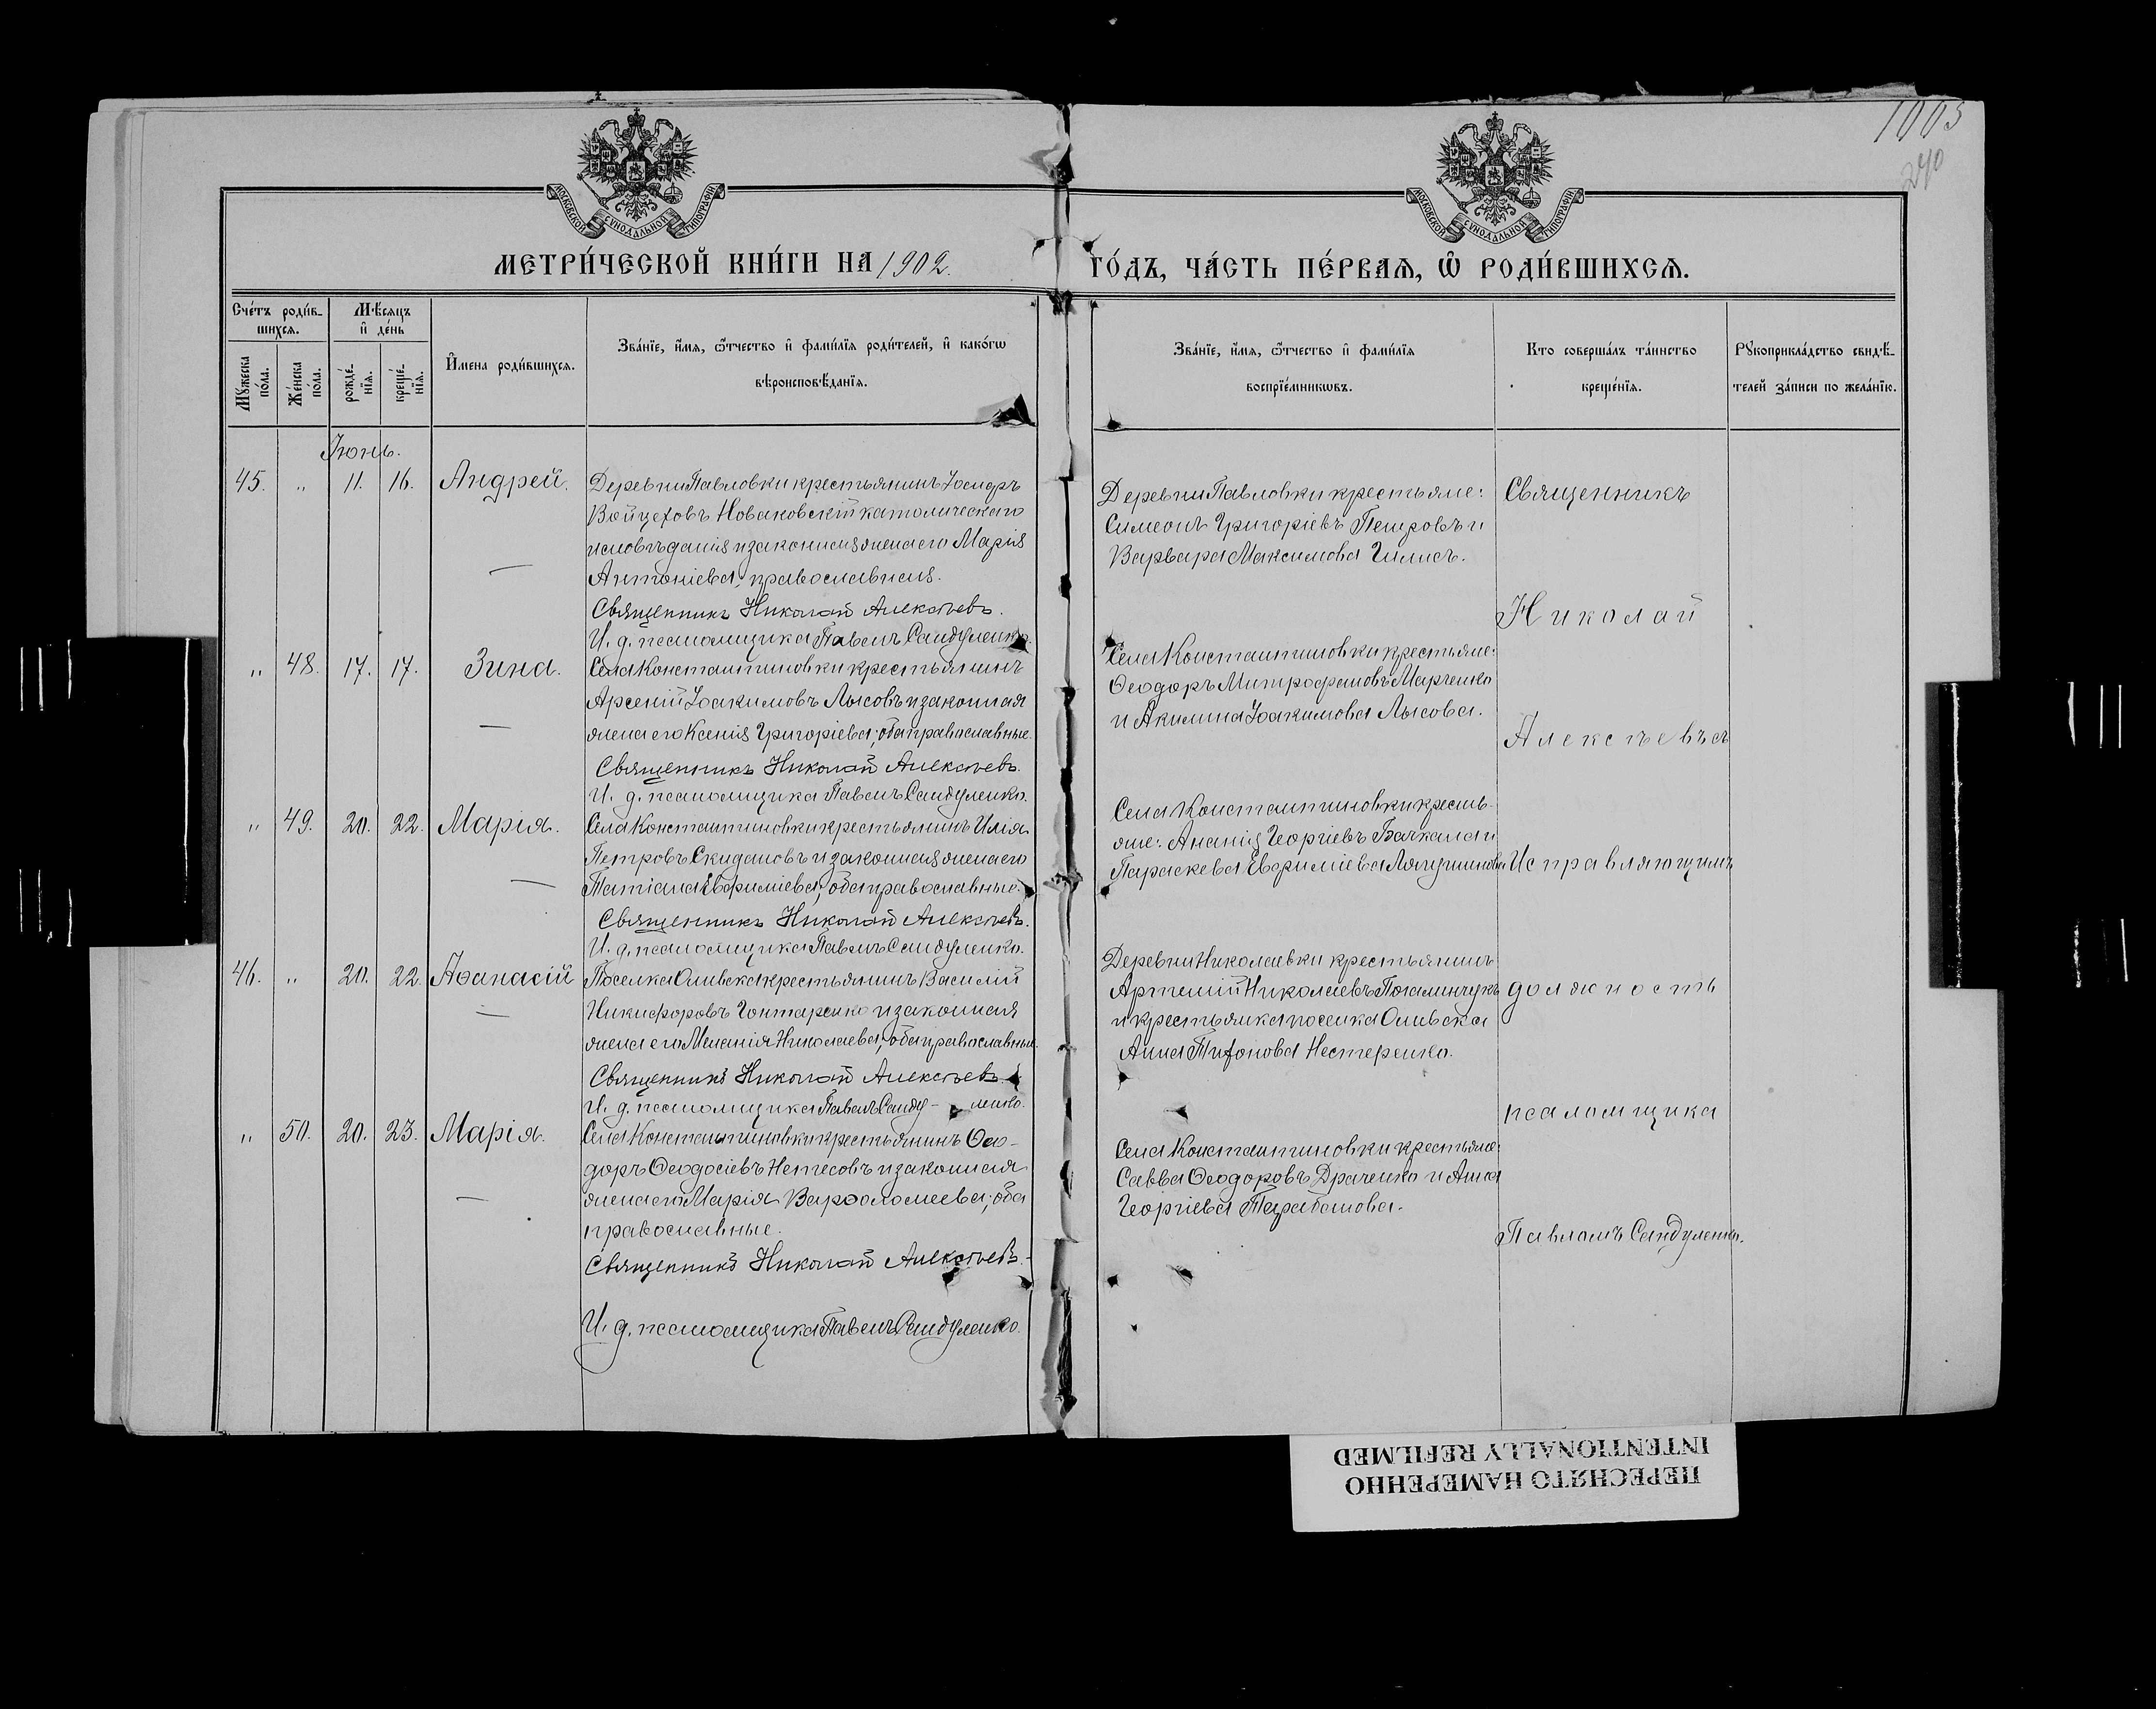 1003
240
МОСКОВСКОЙ СѴНОДАЛЬНОЙ ТИПОГРАФІИ
МОСКОВСКОЙ СѴНОДАЛЬНОЙ ТИПОГРАФІИ
МЕТРИ́ЧЕСКОЙ КНИ́ГИ НА 1902.
ГО́ДЪ, ЧА́СТЬ ПЕ́РВАѦ, Ѿ РОДИ́ВШИХСѦ.
Сче́тъ роди́в-
шихсѧ.
Мѣ́сѧцъ
и҆ де́нь
Мꙋ́жеска
по́ла.
Же́нска
по́ла.
рожде́-
нїѧ.
креще́-
нїѧ.
И҆мена роди́вшихсѧ.
Зва́нїе, и҆́мѧ, ѻ҆́тчество и҆ фами́лїѧ роди́телей, и҆ како́гѡ
вѣроисповѣ́данїѧ.
Зва́нїе, и҆́мѧ, ѻ҆́тчество и҆ фами́лїѧ
воспрїе́мникѡвъ.
Кто соверша́лъ та́инство
креще́нїѧ.
Рꙋкоприкла́дство свидѣ́-
телей за́писи по жела́нїю.
Іюнь.
45. " 11. 16. Андрей.
Деревни Павловки крестьянинъ Іосифъ
Войцеховъ Новаковскій католическаго
исповѣданія и законная жена его Марія
Антоніева, православная.
Священникъ Николай Алексѣевъ.
И. д. псаломщика Павелъ Сандуленко.
Деревни Павловки крестьяне:
Симеонъ Григоріевъ Петровъ и
Варвара Максимова
" 48. 17. 17. Зина.
Села Константиновки крестьянинъ
Арсеній Іоакимовъ Лысовъ и законная
жена его Ксенія Григоріева; оба православные.
Священникъ Николай Алексѣевъ.
И. д. псаломщика Павелъ Сандуленко.
Села Константиновки крестьяне:
Ѳеодоръ Митрофановъ Марченко
и Акилина Іоакимова Лысова.
" 49. 20. 22. Марія.
Села Константиновки крестьянинъ Илія
Петровъ Скидановъ и законная жена его
Татіана Евфиміева; оба православные.
Священникъ Николай Алексѣевъ.
И. д. псаломщика Павелъ Сандуленко.
Села Константиновки кресть-
яне: Ананія Георгіевъ Бачкала и
Параскева Евфиміева
46. " 20. 22. Аѳанасій
Поселка Ольвска крестьянинъ Василій
Никифоровъ Гонтаренко и законная
жена его Меланія Николаева; оба православные.
Священникъ Николай Алексѣевъ.
И. д. псаломщика Павелъ Санду- ленко.
Деревни Николаевки крестьянинъ
Артемій Николаевъ
и крестьянка поселка Ольвска
Анна Тихонова Нестеренко.
" 50. 20. 23. Марія.
Села Константиновки крестьянинъ Ѳео-
доръ Ѳеодосіевъ Нетесовъ и законная
жена его Марія Варѳоломеева; оба
православные.
Священникъ Николай Алексѣевъ.
И. д. псаломщика Павелъ Сандуленко.
Села Константиновки крестьяне:
Савва Ѳеодоровъ Драченко и Анна
Георгіева Тарабанова.
Священникъ
Николай
Алексѣевъ съ
Исправляющимъ
должность
псаломщика
Павломъ Сандуленко.
ПЕРЕСНЯТО НАМЕРЕННО
INTENTIONALLY REFILMED